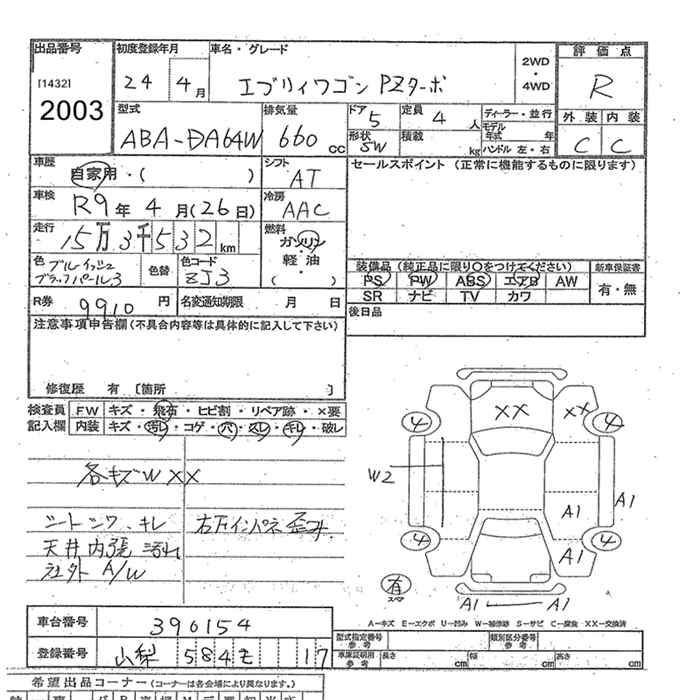 出品番号 初度登録年月 車名・グレード 評価点
[1432] 24 4月 エブリィワゴン PZターボ 2WD・4WD R
2003 型式 排気量 ドア 5 定員 4人 ディーラー・並行 外装 内装
ABA-DA64W 660cc 形状 5W 積載 kg モデル年式 年 ハンドル 左・右 C C
車歴 自家用・( ) シフト AT セールスポイント (正常に機能するものに限ります)
車検 R9年 4月(26日) 冷房 AAC
走行 15万3千532km 燃料 ガソリン・軽油 ( )
色 ブルーイッシュブラックパール3 色替 色コード ZJ3 装備品 (純正品に限り○をつけてください) 新車保証書
PS PW ABS エアB AW 有・無
R券 9910円 名変通知期限 月 日 SR ナビ TV カワ
注意事項申告欄(不具合内容等は具体的に記入して下さい) 後日品
修復歴 有 〔箇所 〕
検査員 FW キズ・飛石・ヒビ割・リペア跡・×要
記入欄 内装 キズ・汚レ・コゲ・穴・スレ・キレ・破レ
各キズW XX
シートシワ、キレ 右方インパネ歪み
天井内張汚れ
社外 A/W
XX XX
4 4
W2
A1 A1
4 A1 4
有
A1 A1
A-キズ E-エクボ U-凹み W-補修跡 S-サビ C-腐食 XX-交換済
車台番号 390154
登録番号 山梨 584 そ 17
型式指定番号 参考 類別区分番号 参考
車庫証明用 参考 長さ cm 幅 cm 高さ cm
希望出品コーナー (コーナーは各会場により異なります。)